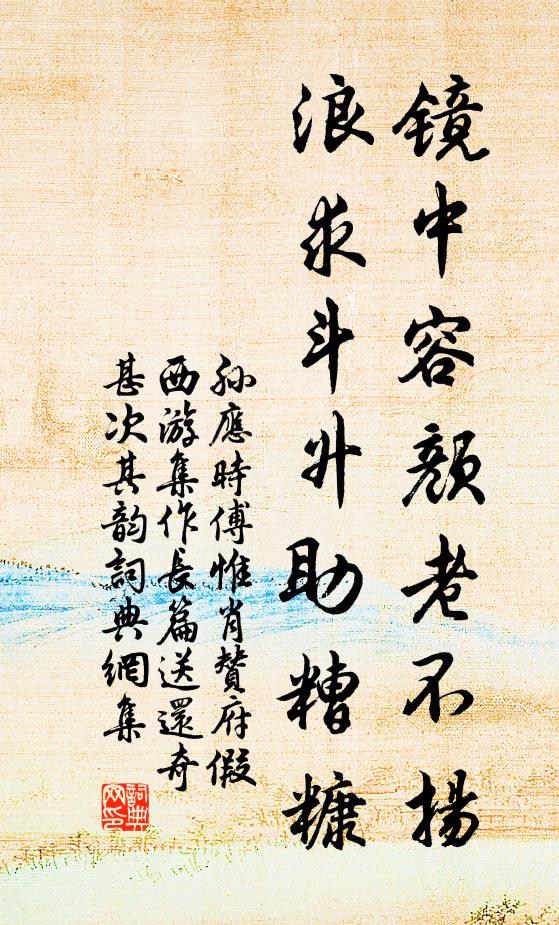 镜中容颜老不揚
浪求斗升助糟糠
孙應時傅惟肖賛府假
西游集作長篇送還奇
甚次其韵詞典網集
詞典網印